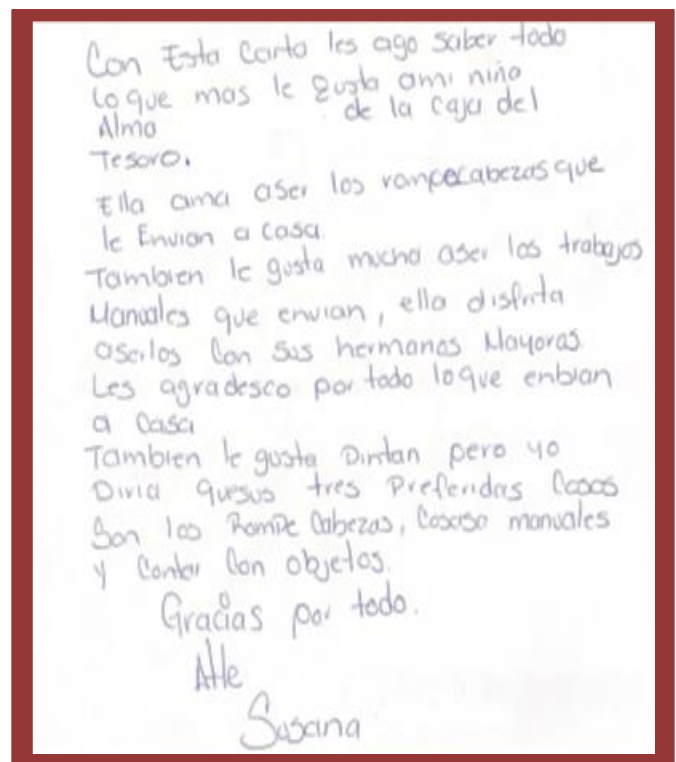 Con Esta Carta les ago saber todo
lo que mas le gusta ami niña
de la caja del
Alma
Tesoro.
Ella ama aser los rompecabezas que
le Envian a casa.
Tambien le gusta mucho aser los trabajos
Manuales que envian, ella disfruta
aserlos Con sus hermanas Mayoras.
Les agradesco por todo lo que enbian
a Casa
Tambien le gusta Pintan pero yo
Diria quesus tres Preferidas Cosas
Son los Rompe Cabezas, manuales
y Contar Con objetos.
Gracias por todo.
Atte
Susana